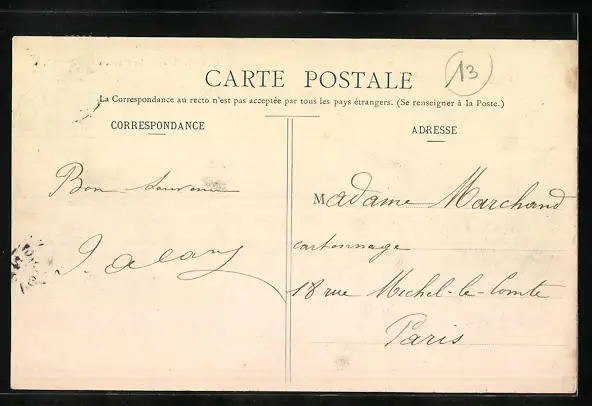 CARTE POSTALE
13
La Correspondance au recto n'est pas acceptée par tous les pays étrangers. (Se renseigner à la Poste.)
CORRESPONDANCE
Bon souvenir
ADRESSE
Madame Marchand
cartonnage
18 rue Michel-le-Comte
Paris